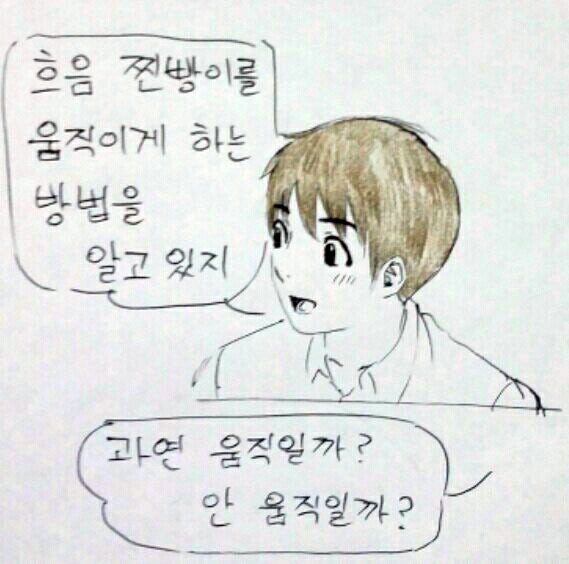 흐음 찐빵이를
움직이게 하는
방법을
알고 있지
과연 움직일까?
안 움직일까?